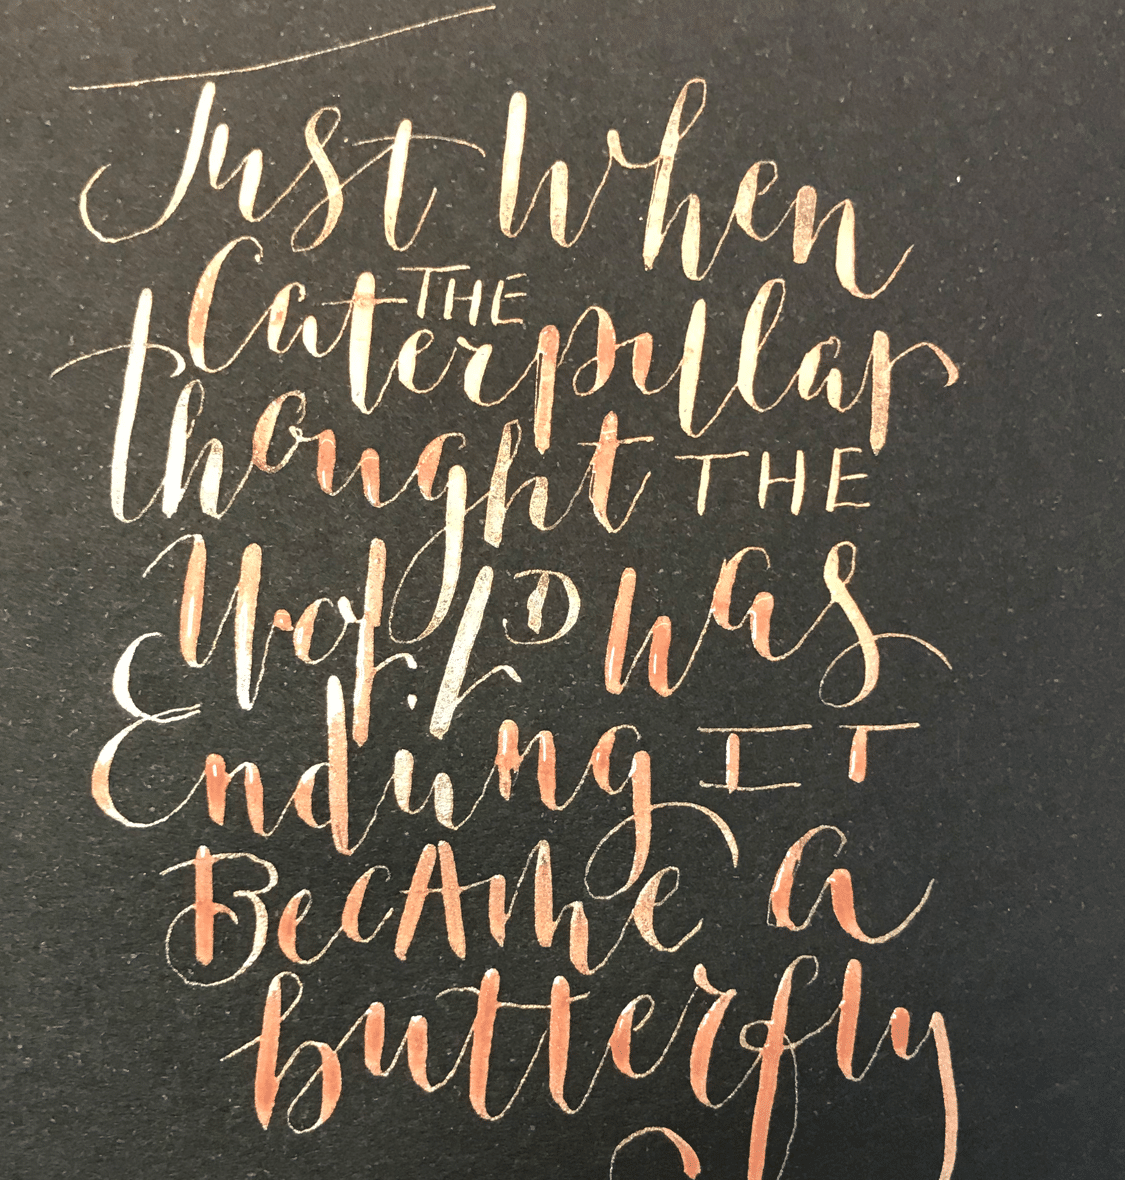 Just When
THE
Caterpillar
thought THE
World was
Ending IT
BecAme a
butterfly